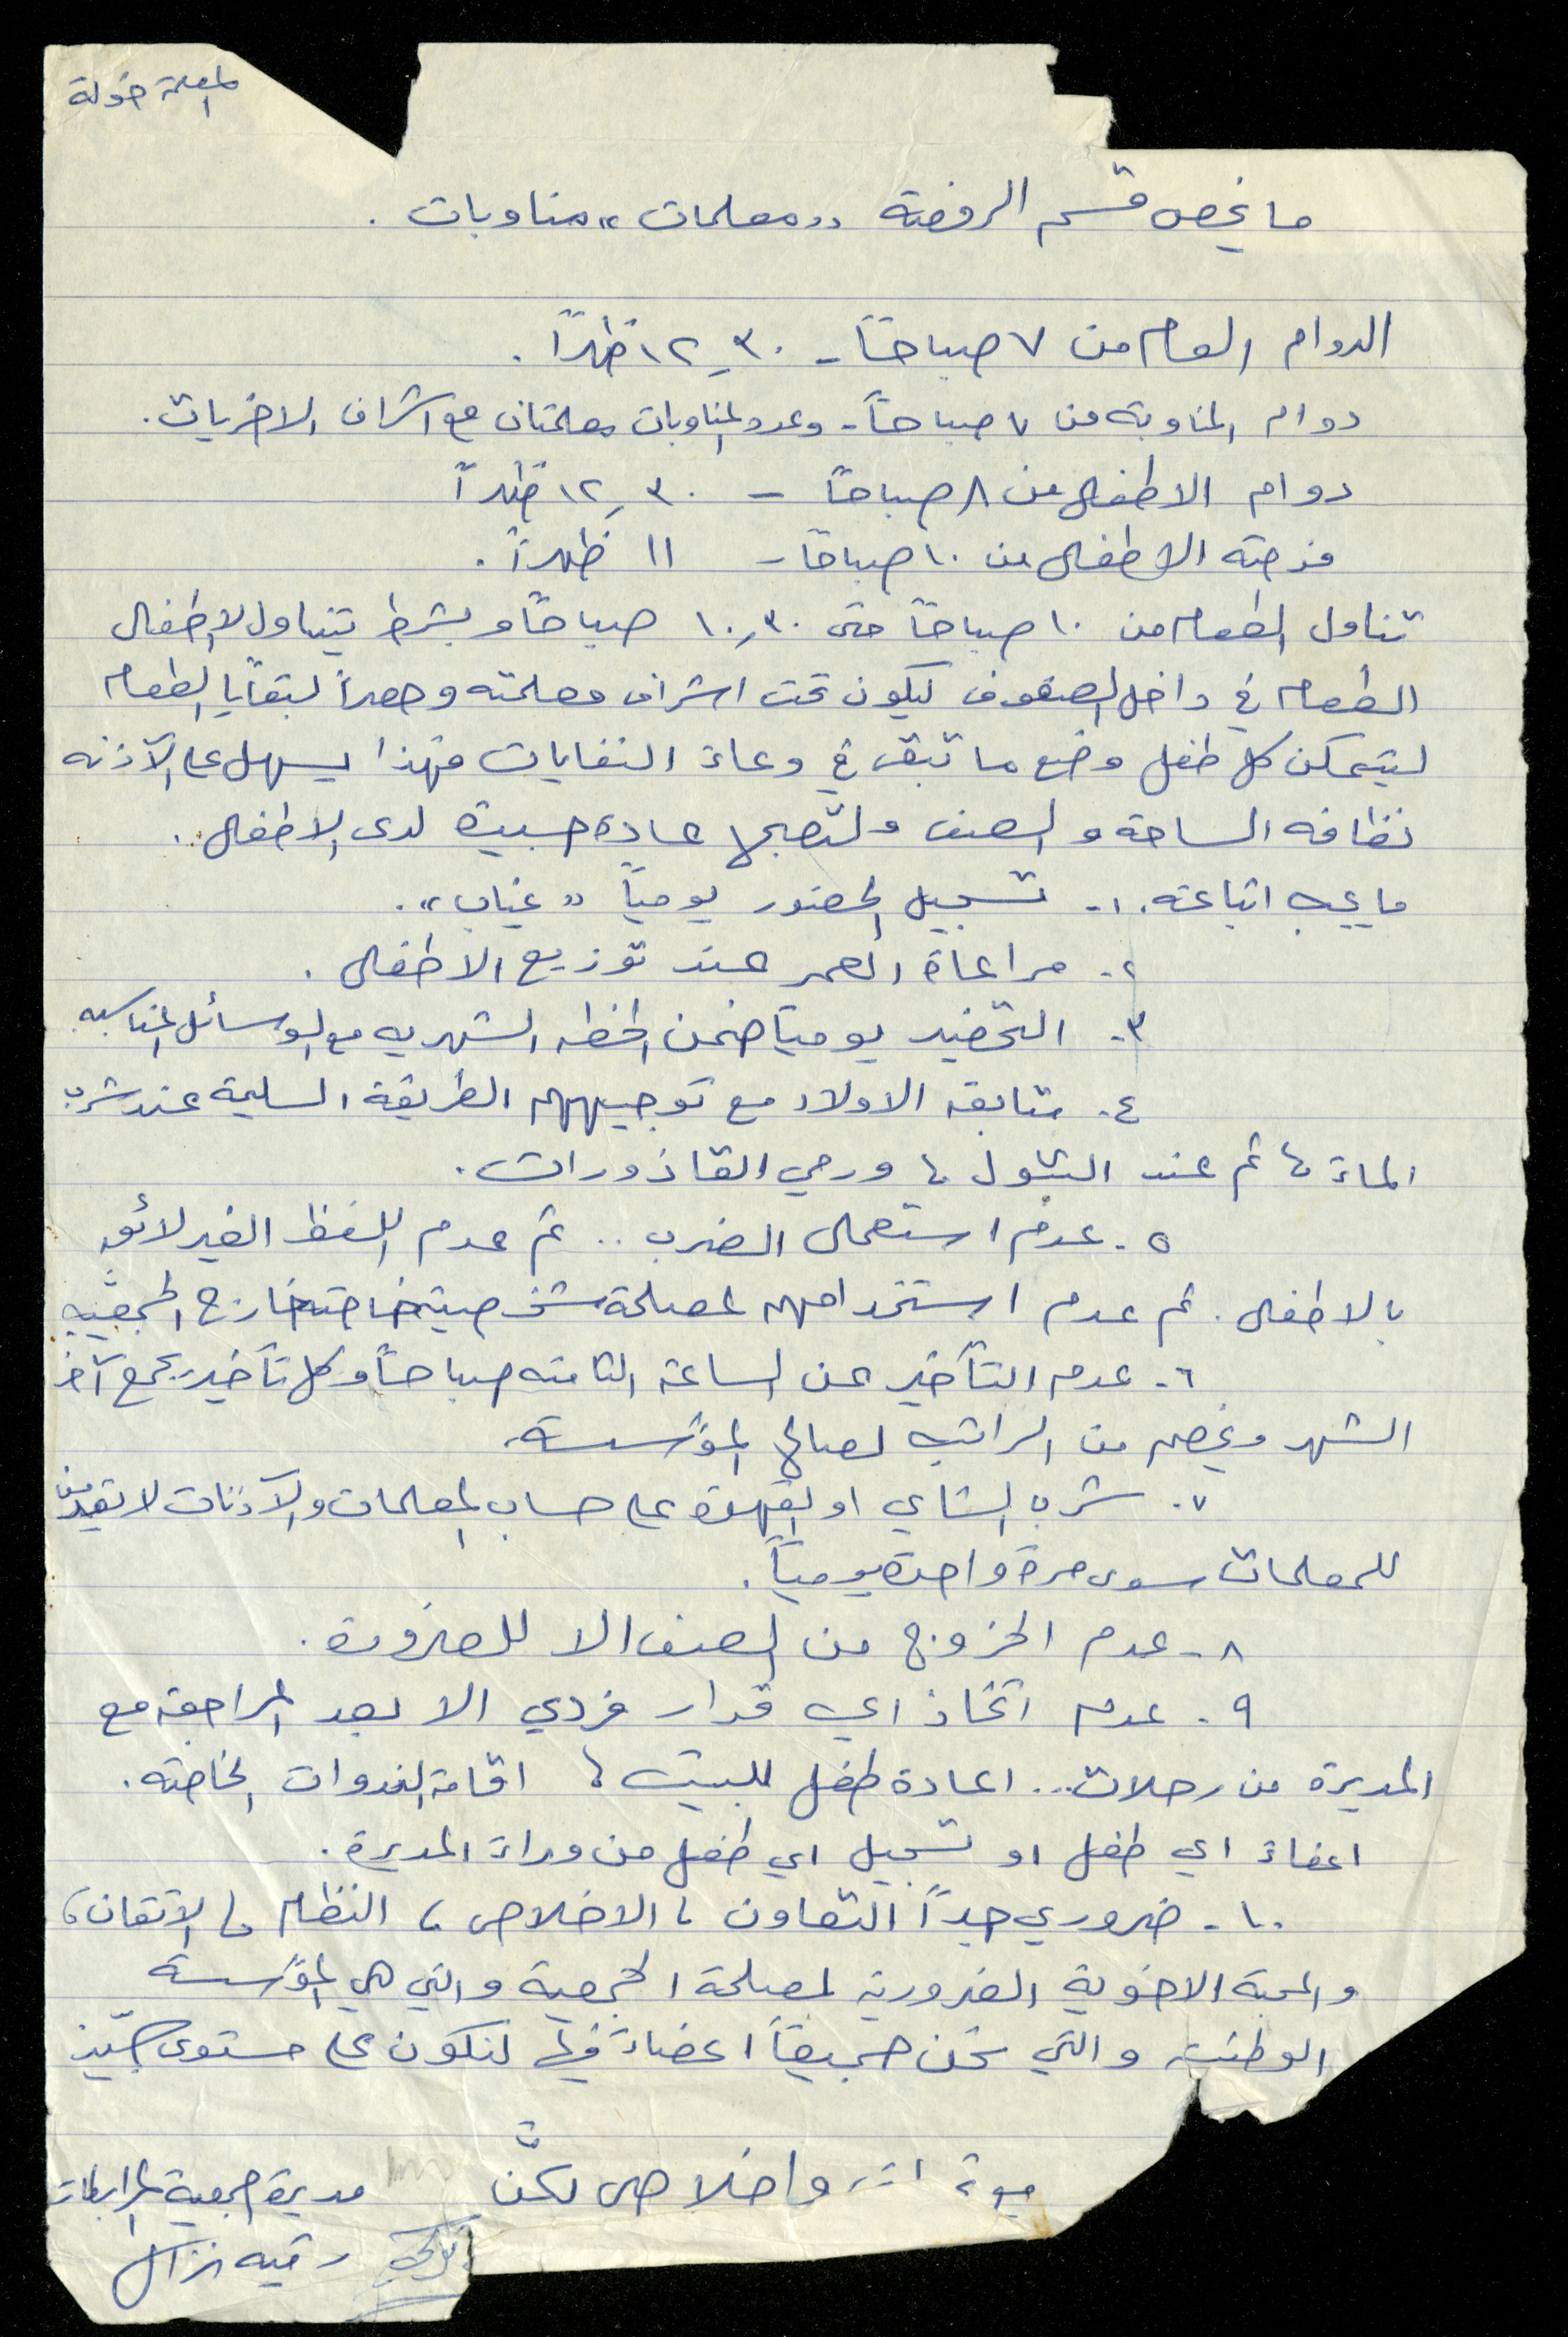 المعلمة خولة
ما يخص قسم الروضة "معلمات" مناوبات .
الدوام العام من ٧ صباحاً - ١٢,٣٠ ظهراً .
دوام المناوبة من ٧ صباحاً - وعدد المناوبات معلمتان مع اشراف الاخريات .
دوام الاطفال من ٨ صباحاً - ١٢,٣٠ ظهراً
فرصة الاطفال من ١٠ صباحاً - ١١ ظهراً .
تناول الطعام من ١٠ صباحاً حتى ١٠,٣٠ صباحاً وبشرط تيناول الاطفال
الطعام في داخل الصفوف ليكون تحت اشراف معلمته وحصراً لبقايا الطعام
ليتمكن كل طفل وضع ما تبقى في وعاء النفايات فهذا يسهل على الآذنه
نظافه الساحة والصف ولتصبح عادة حسيدة لدى الاطفال .
ما يجب اتباعه . ١- تسجيل الحضور يومياً "غياب" .
٢- مراعاة العمر عند توزيع الاطفال .
٣- التحضير يومياً ضمن الخطه الشهريه مع الوسائل المناسبه
٤- متابعه الاولاد مع توجيههم الطريقة السليمة عند شرب
الماء ، ثم عند التبول ، ورمي القاذورات .
٥- عدم استعمال الضرب .. ثم عدم اللفظ الغير لائق
بالاطفال . ثم عدم استخدامهم لمصلحة شخصية خاصة خارج الجمعيه
٦- عدم التأخير عن الساعة الثامنه صباحاً وكل تأخير يجمع آخر
الشهر ويخصم من الراتب لصالح المؤسسة .
٧- شرب الشاي او القهوة على حساب المعلمات والآذنات لا تقدمن
للمعلمات سوى مرة واحدة يومياً .
٨- عدم الخروج من الصف الا للضرورة .
٩- عدم اتخاذ اي قرار فردي الا بعد المراجعة مع
المديرة من رحلات .. اعادة طفل للبيت ، اقامة الندوات الخاصة .
اعفاء اي طفل او تسجيل اي طفل من وراء المديرة .
١٠- ضروري جداً التعاون ، الاخلاص ، النظام ، الاتقان ،
والمحبة الاخوية الضرورية لمصلحة الجمعية والتي هي المؤسسة
الوطنية والتي نحن جميعاً اعضاء فيها لنكون على مستوى جيد
واخلاصي لكنَّ
مديرة جمعية المرابطات
رقيه نزال